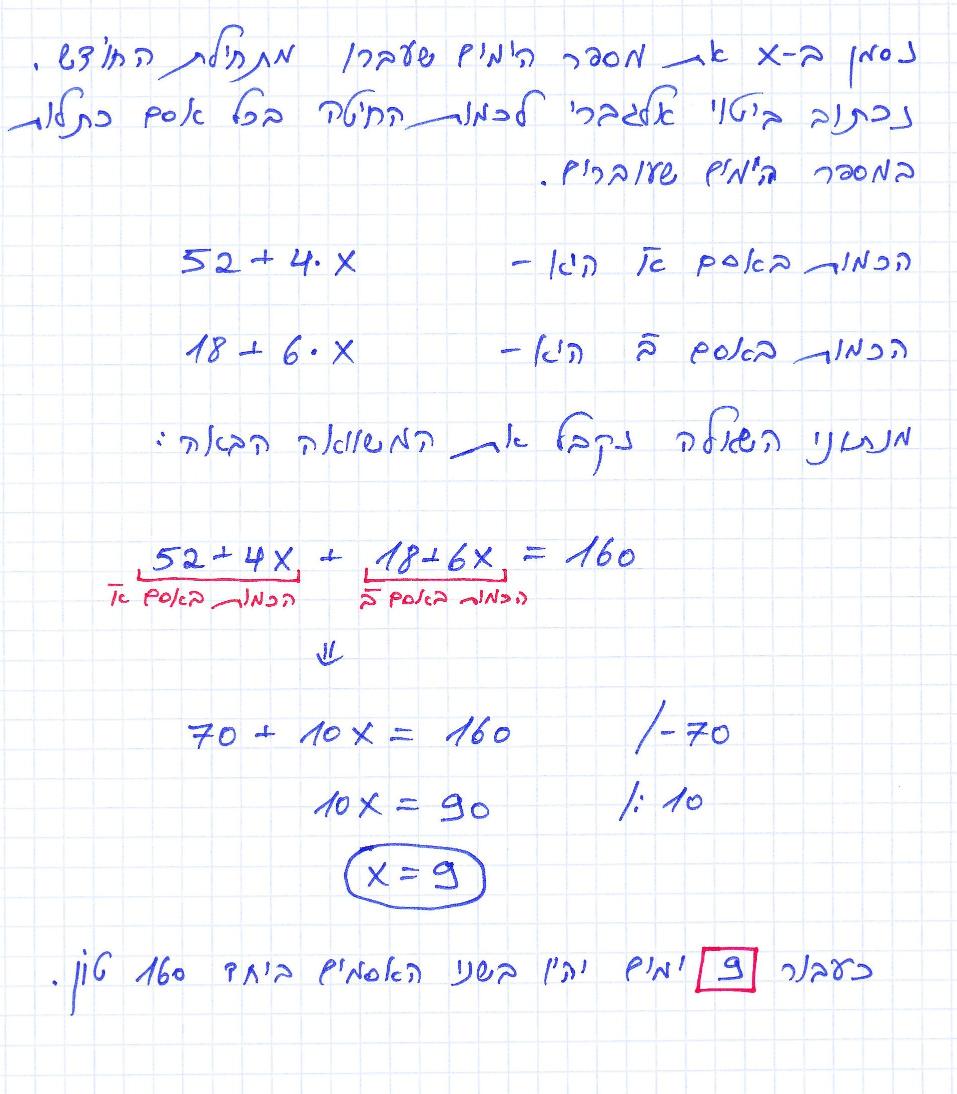 נסמן ב-x את מספר הימים שעברו מתחילת החודש.
נכתוב ביטוי אלגברי לכמות החיטה בכל אסם כתלות
במספר הימים שעוברים.
הכמות באסם א' היא - 52 + 4·x
הכמות באסם ב' היא - 18 + 6·x
מנתוני השאלה נקבל את המשוואה הבאה:
52 + 4x + 18+6x = 160
הכמות באסם א' הכמות באסם ב'
⇓
70 + 10x = 160 /-70
10x = 90 /: 10
x = 9
כעבור 9 ימים יהיו בשני האסמים ביחד 160 טון.